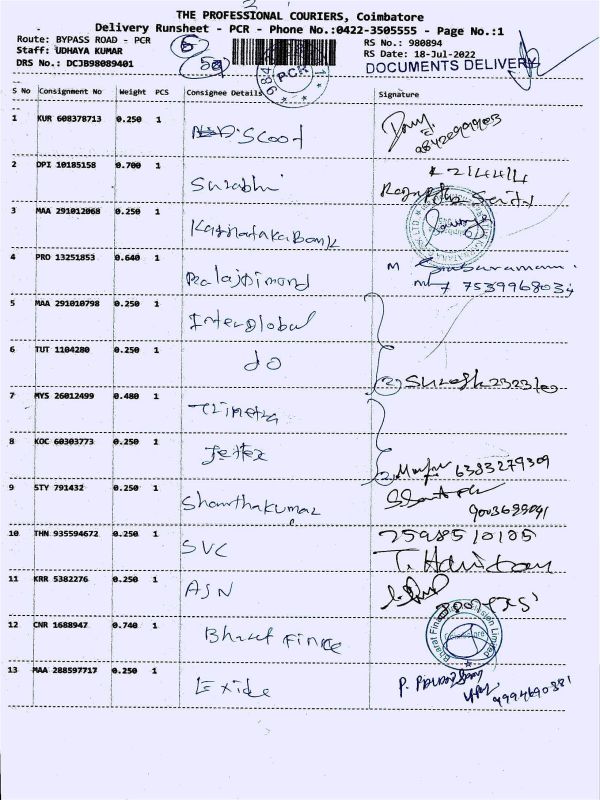 THE PROFESSIONAL COURIERS, Coimbatore
Delivery Runsheet - PCR - Phone No.:0422-3505555 - Page No.:1
Route: BYPASS ROAD - PCR
RS No.: 980894
Staff: UDHAYA KUMAR
RS Date: 18-Jul-2022
DRS No.: DCJB98089401
DOCUMENTS DELIVERY
PCR
S No Consignment No Weight PCS Consignee Details Signature
1 KUR 608378713 0.250 1 Scood
2 DPI 10185158 0.700 1 Surabhi
3 MAA 291012068 0.250 1 Karnataka Bank
4 PRO 13251853 0.640 1
M
7539968034
5 MAA 291010798 0.250 1 Interglobal
6 TUT 1104280 0.250 1 do
(2) Suresh
7 MYS 26012499 0.480 1
8 KOC 60303773 0.250 1
6383279309
9 STY 791432 0.250 1 Shanthakumar
9003699091
10 THN 935594672 0.250 1 SVC
2598510105
11 KRR 5382276 0.250 1 ASN
12 CNR 1688947 0.740 1 Bharat Finance
13 MAA 288597717 0.250 1 Exide